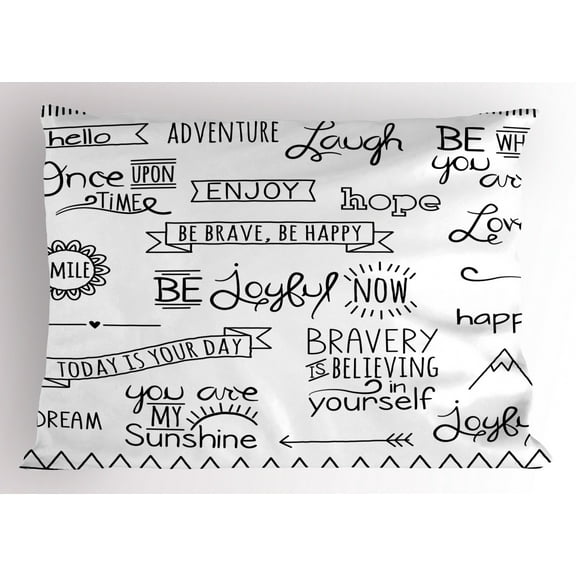 hello
ADVENTURE
Laugh
BE WH
you ar
Once UPON
TIME
ENJOY
hope
BE BRAVE, BE HAPPY
Lov
MILE
BE Joyful NOW
happ
TODAY IS YOUR DAY
BRAVERY
IS BELIEVING
in
yourself
you are
MY
Sunshine
DREAM
Joyfu